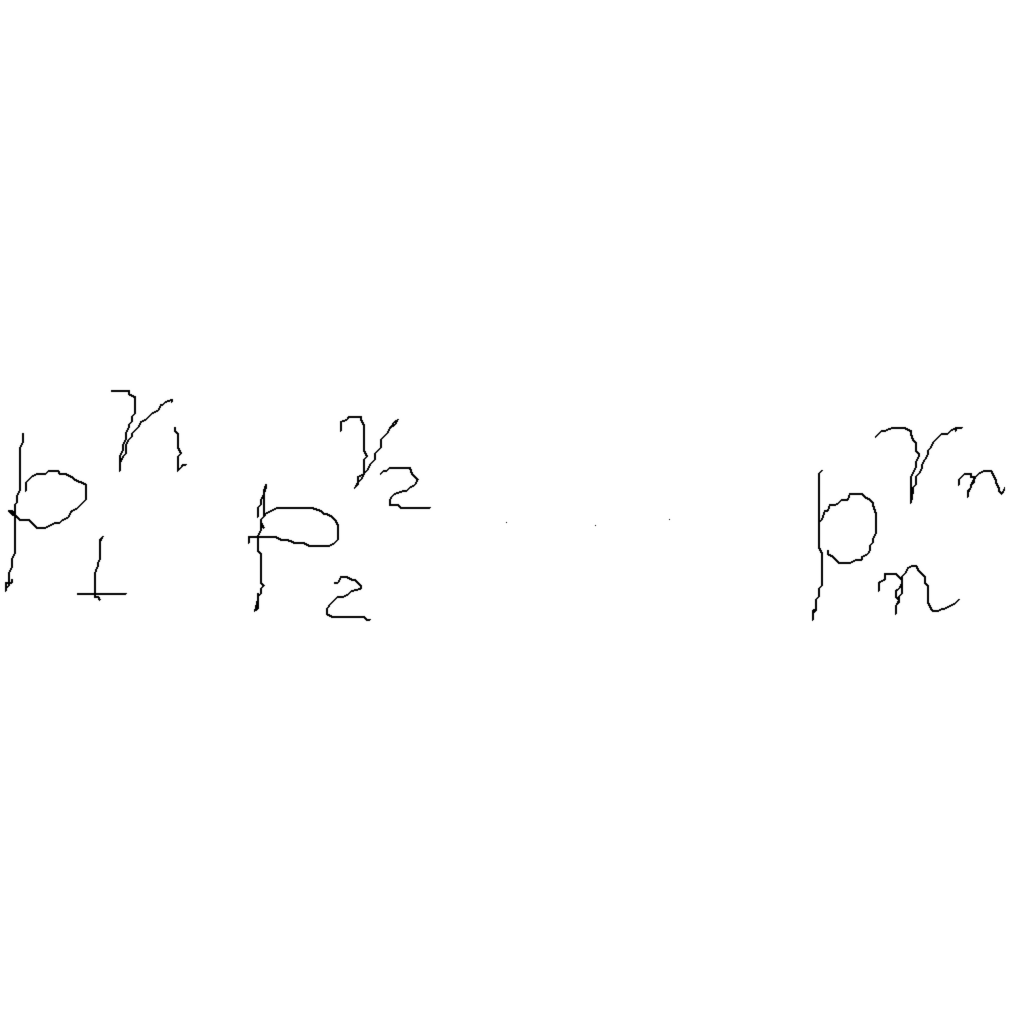 p_1^{r_1} p_2^{r_2} . . . p_n^{r_n}